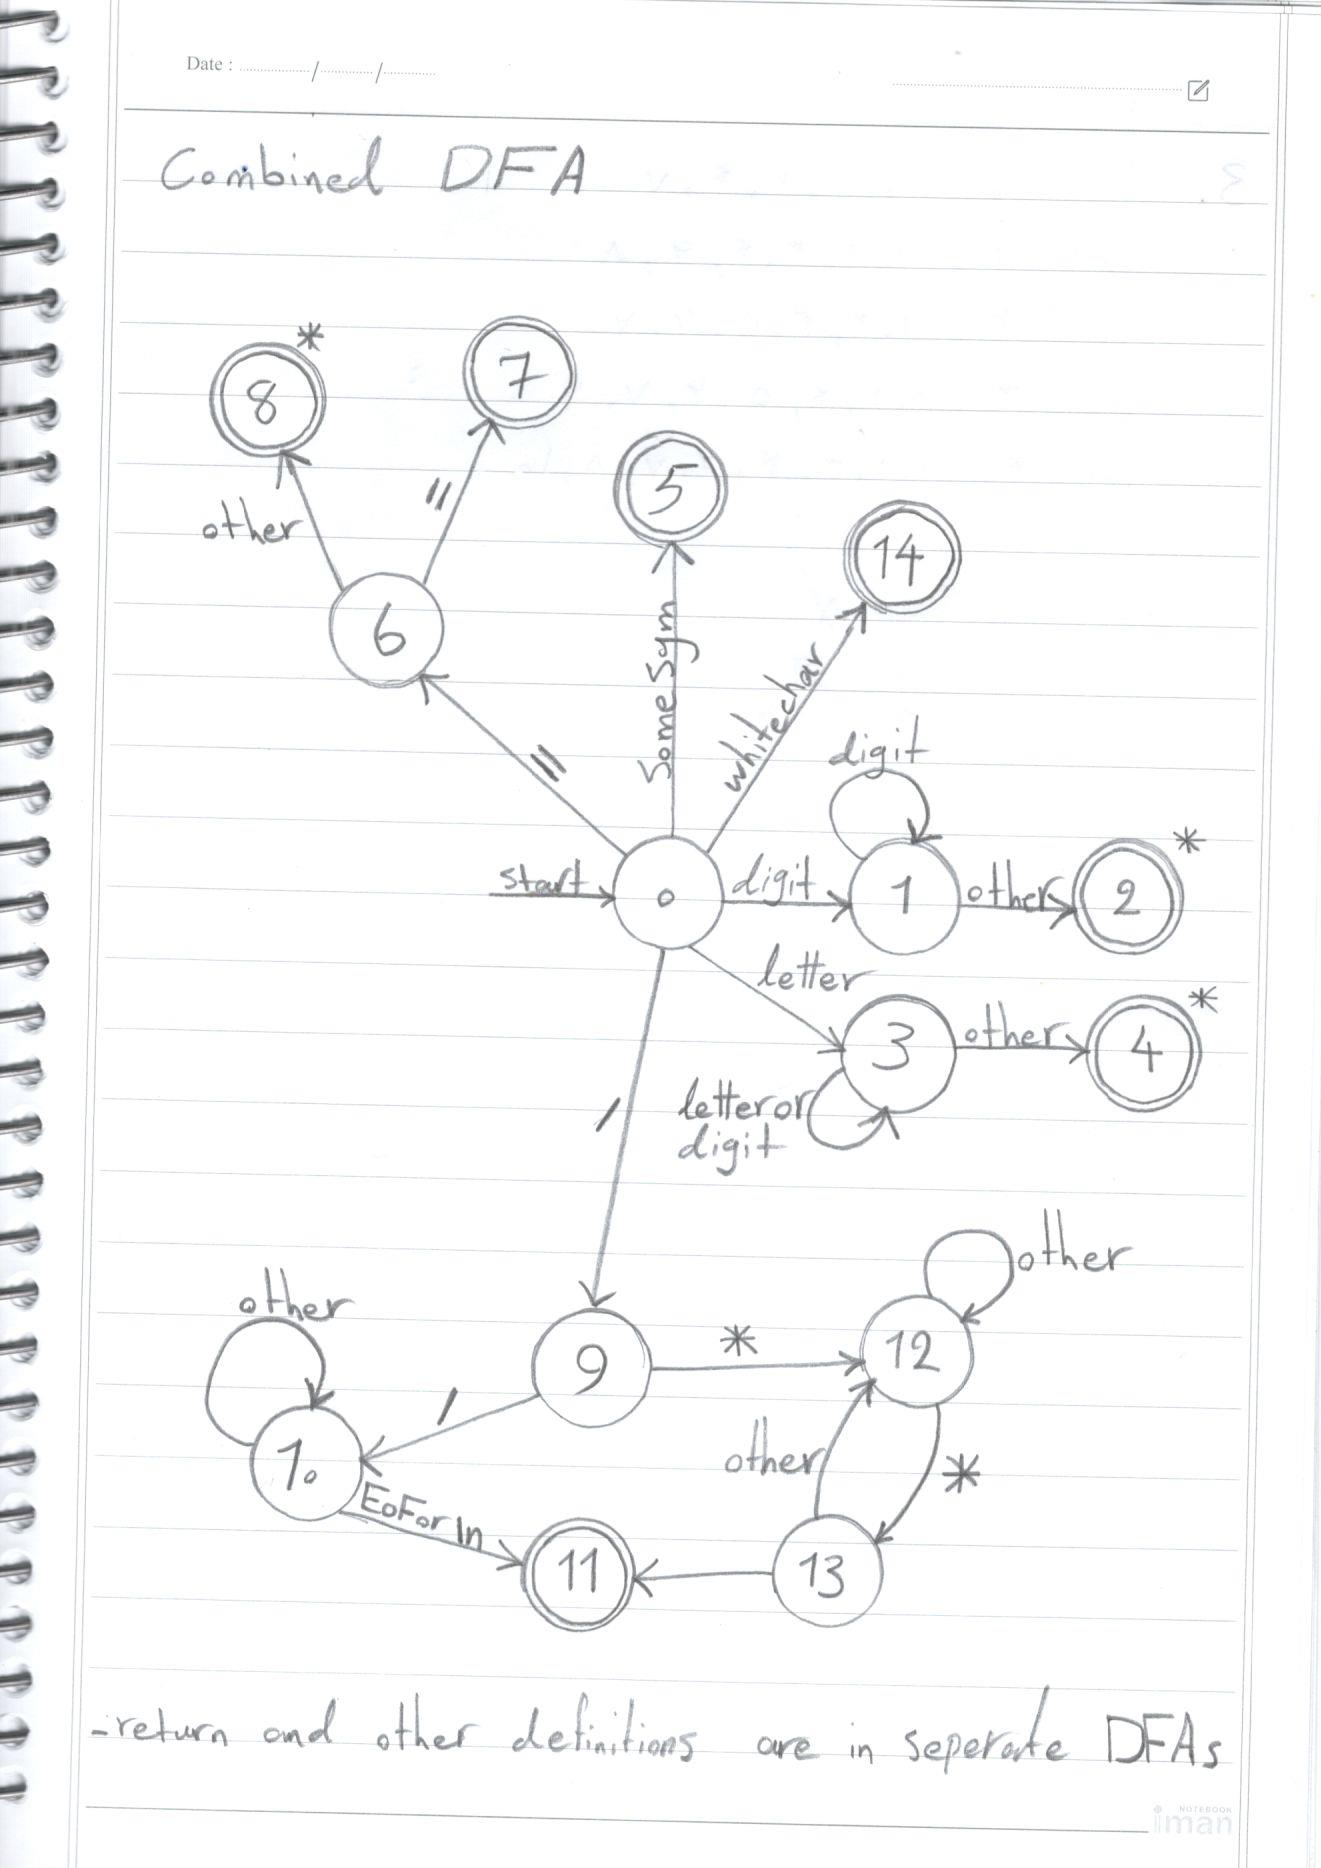 Date : / /
Combined DFA
8 *
7
other
=
5
14
6
=
Some Sym
whitechar
digit
start
0
digit
1
other
2 *
letter
3
other
4 *
letter or
digit
/
other
other
9
*
12
/
10
other
*
EOF or \n
11
13
-return and other definitions are in seperate DFAs
NOTEBOOK
iman